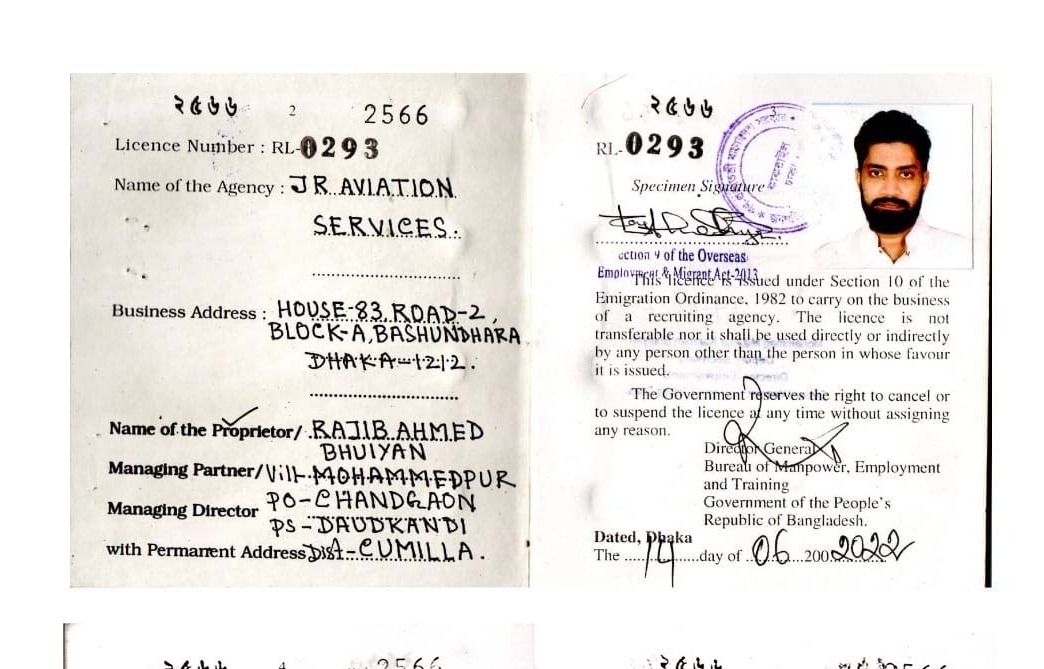 ২৫৬৬ 2 2566
Licence Number : RL-0293
Name of the Agency : J R AVIATION
SERVICES.
Business Address : HOUSE-83, ROAD-2,
BLOCK-A, BASHUNDHARA
DHAKA-1212.
Name of the Proprietor/ RAJIB AHMED
BHUIYAN
Managing Partner/ Vill-MOHAMMEDPUR
PO-CHANDGAON
Managing Director
PS-DAUDKANDI
with Permanent Address Dist-CUMILLA.
২৫৬৬ 3
RL-0293
Specimen Signature
ection 9 of the Overseas
Employment & Migrant Act-2013
This licence is issued under Section 10 of the
Emigration Ordinance, 1982 to carry on the business
of a recruiting agency. The licence is not
transferable nor it shall be used directly or indirectly
by any person other than the person in whose favour
it is issued.
The Government reserves the right to cancel or
to suspend the licence at any time without assigning
any reason.
Director General
Bureau of Manpower, Employment
and Training
Government of the People's
Republic of Bangladesh.
Dated, Dhaka
The 14 day of 06 200 2022
২৫৬৬ 4 2566
২৫৬৬ 2566